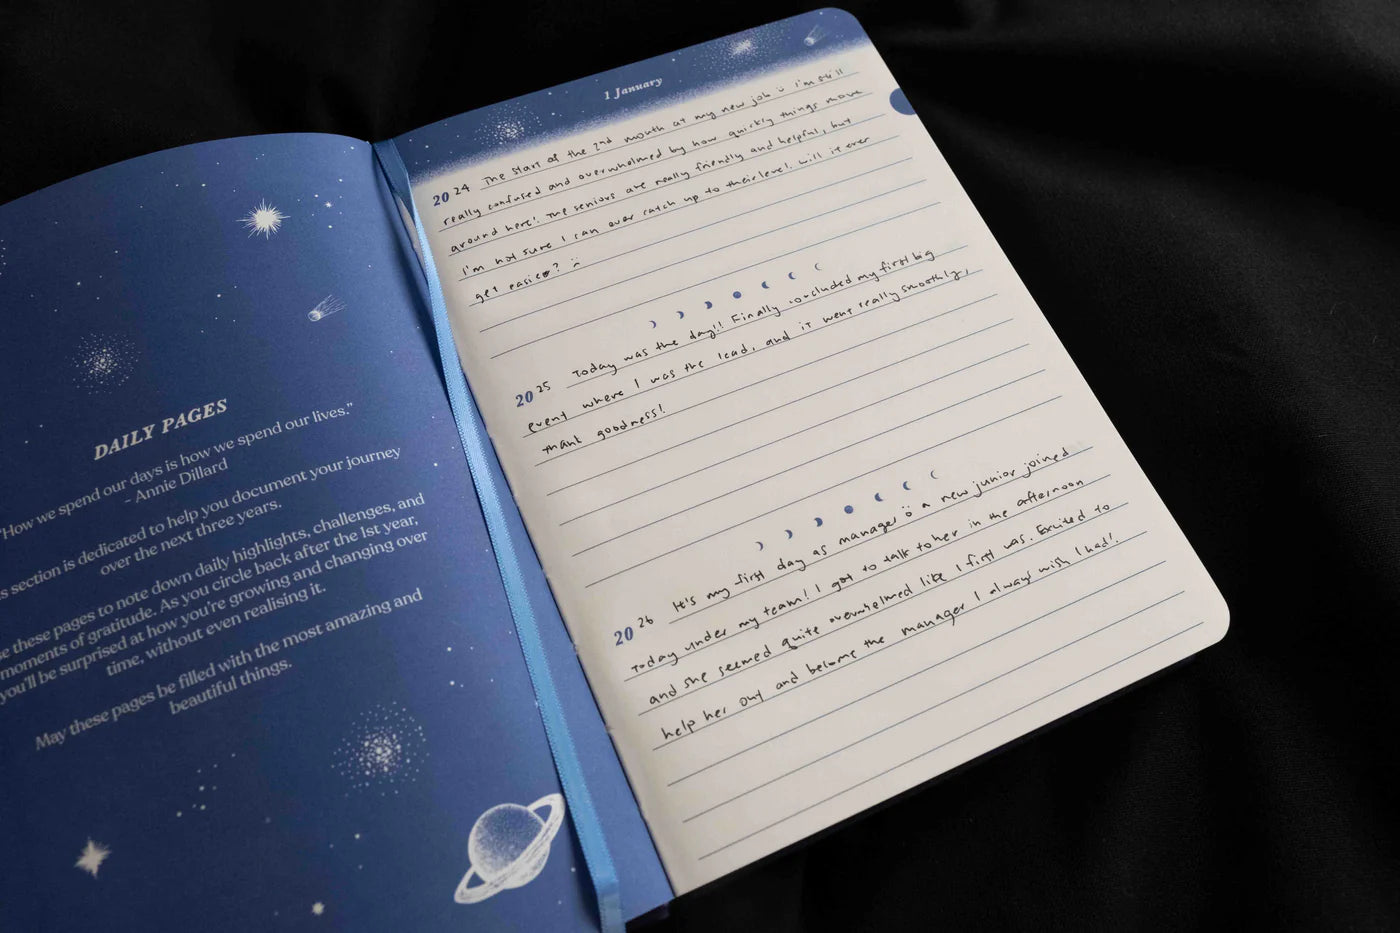 DAILY PAGES
"How we spend our days is how we spend our lives."
- Annie Dillard
s section is dedicated to help you document your journey
over the next three years.
e these pages to note down daily highlights, challenges, and
moments of gratitude. As you circle back after the 1st year,
you'll be surprised at how you're growing and changing over
time, without even realising it.
May these pages be filled with the most amazing and
beautiful things.
1 January
2024 The start of the 2nd month at my new job I'm still
really confused and overwhelmed by how quickly things move
around here! The seniors are really friendly and helpful, but
I'm not sure I can ever catch up to their level. Will it ever
get easier?
2025 Today was the day!! Finally concluded my first big
event where I was the lead, and it went really smoothly,
thank goodness!
2026 It's my first day as manager a new junior joined
today under my team! I got to talk to her in the afternoon
and she seemed quite overwhelmed like I first was. Excited to
help her out and become the manager I always wish I had!